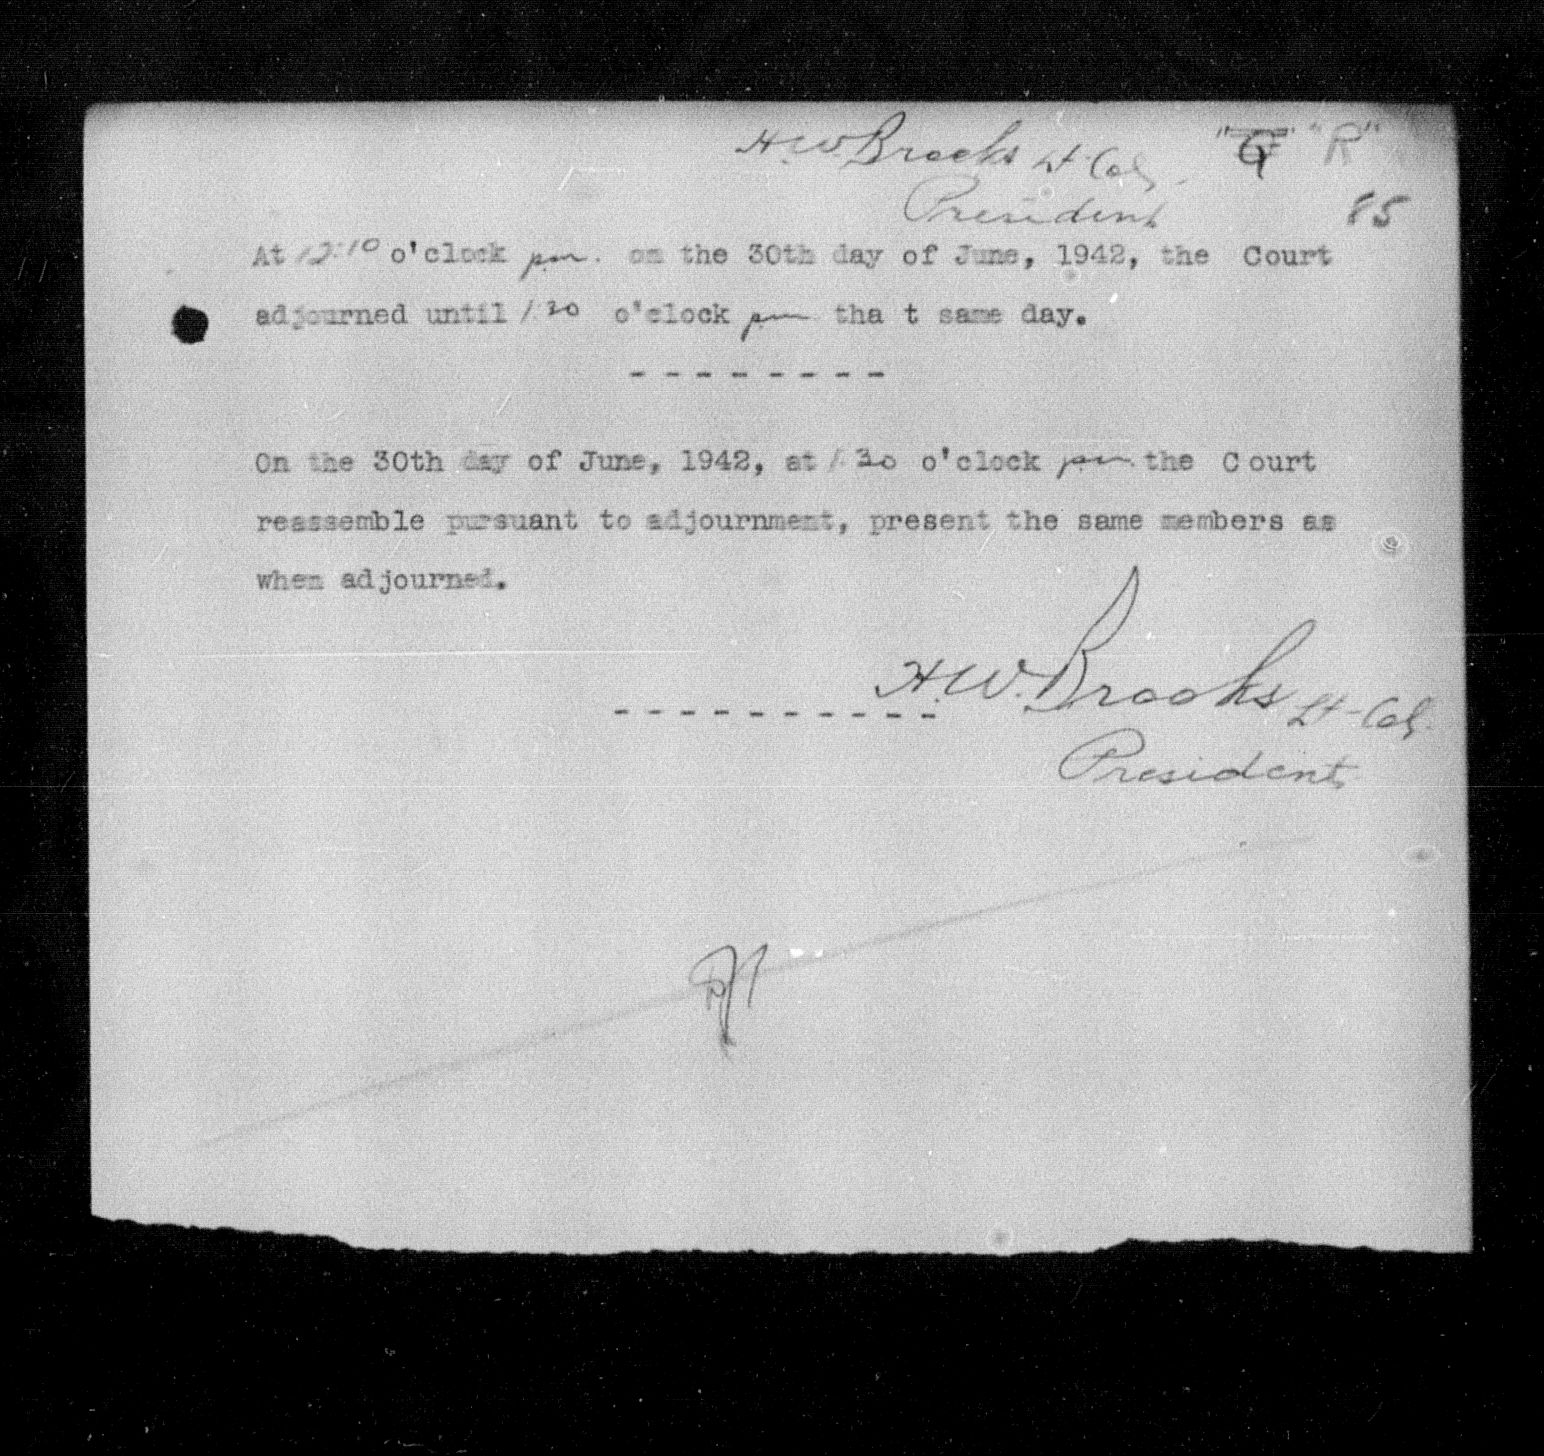 H.W. Brooks Lt-Col. "Q" "R"
President 85
At 12:10 o'clock pm. on the 30th day of June, 1942, the Court
adjourned until 1.30 o'clock pm tha t same day.
- - - - - - - -
On the 30th day of June, 1942, at 1.30 o'clock pm. the C ourt
reassemble pursuant to adjournment, present the same members as
when adjourned.
H.W. Brooks Lt-Col.
- - - - - - - - - -
President